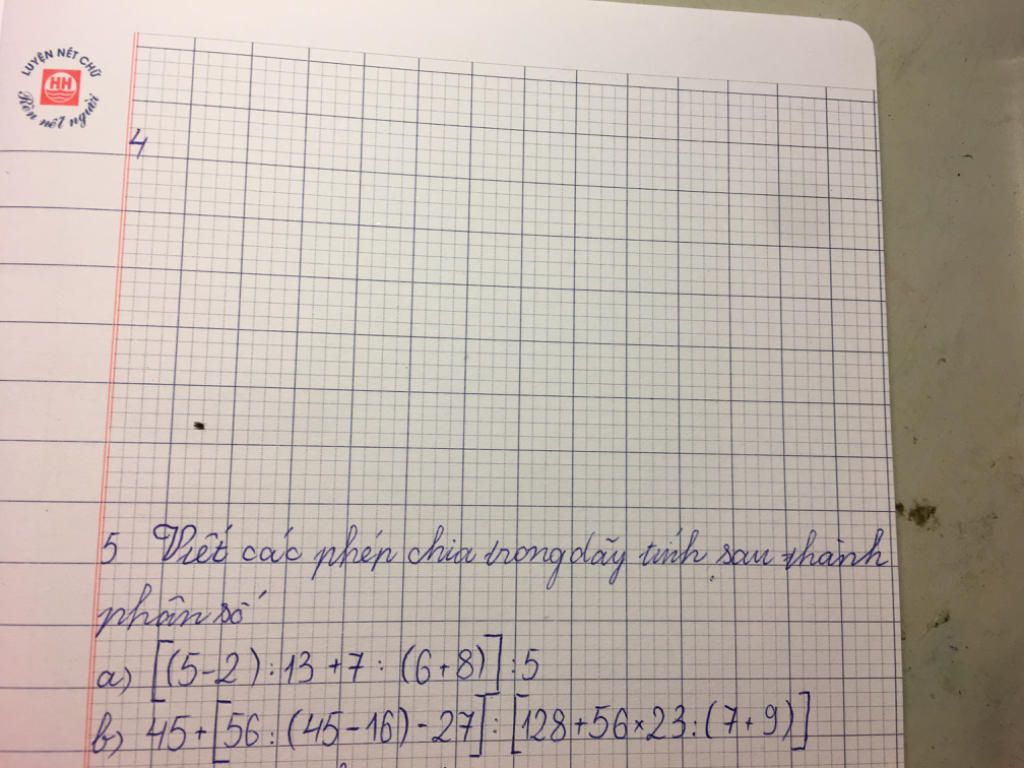 LUYỆN NÉT CHỮ
HH
Rèn nết người
4
5 Viết các phép chia trong dãy tính sau thành
phân số
a) [(5-2) : 13 + 7 : (6+8)] : 5
b) 45 + [56 : (45 - 16) - 27] : [128 + 56 × 23 : (7 + 9)]